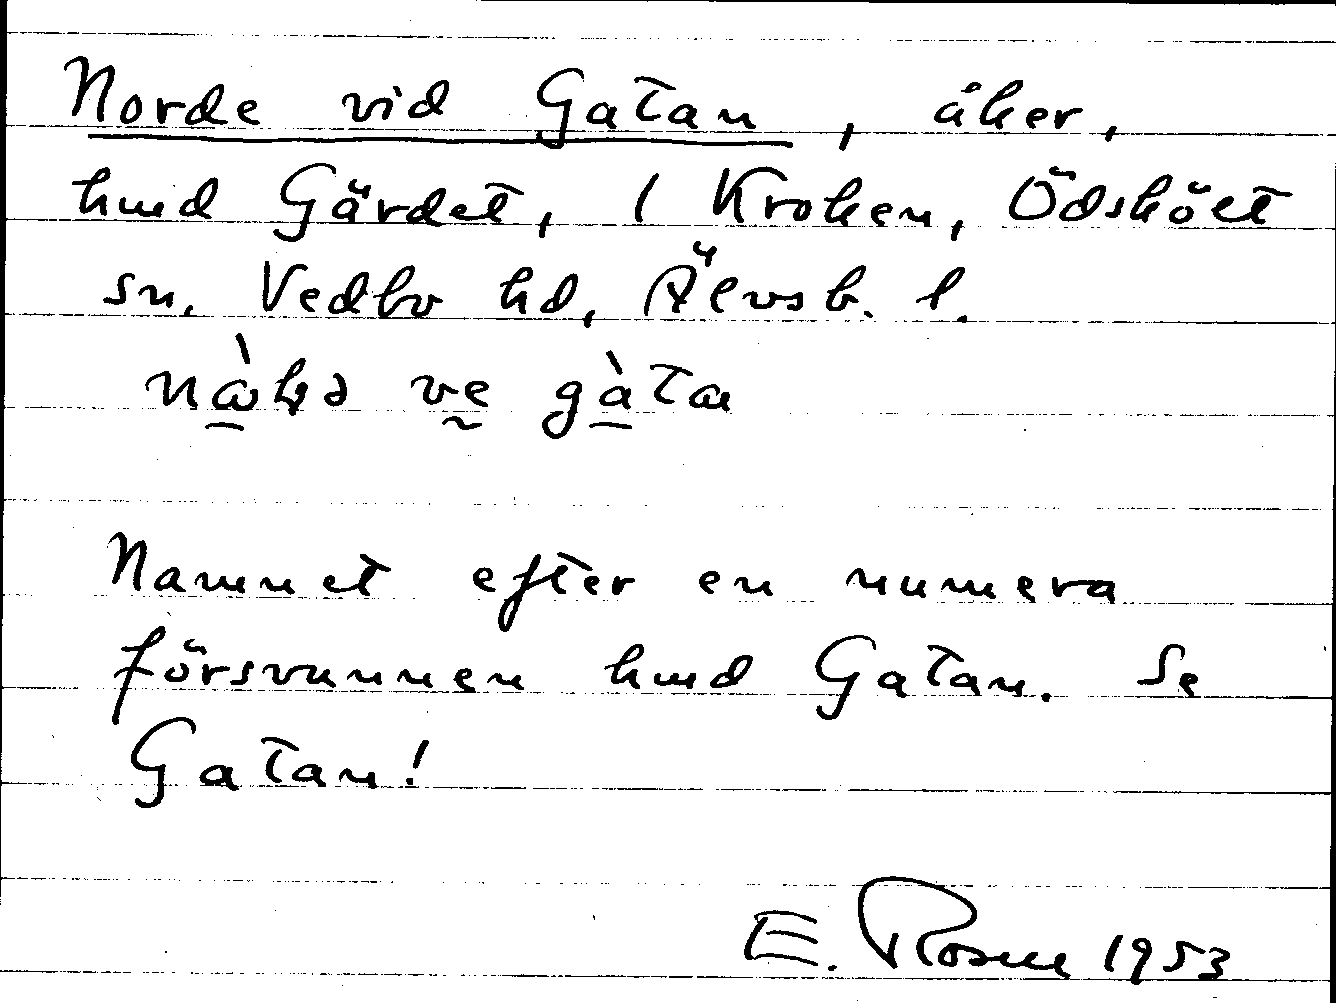 Norde vid Gatan, åker,
hmd Gärdet, 1 Kroken, Ödskölt
sn. Vedbo hd, Älvsb. l.
ve gàta
Namnet efter en numera
försvunnen hmd Gatan. Se
Gatan!
E. Rosell 1953